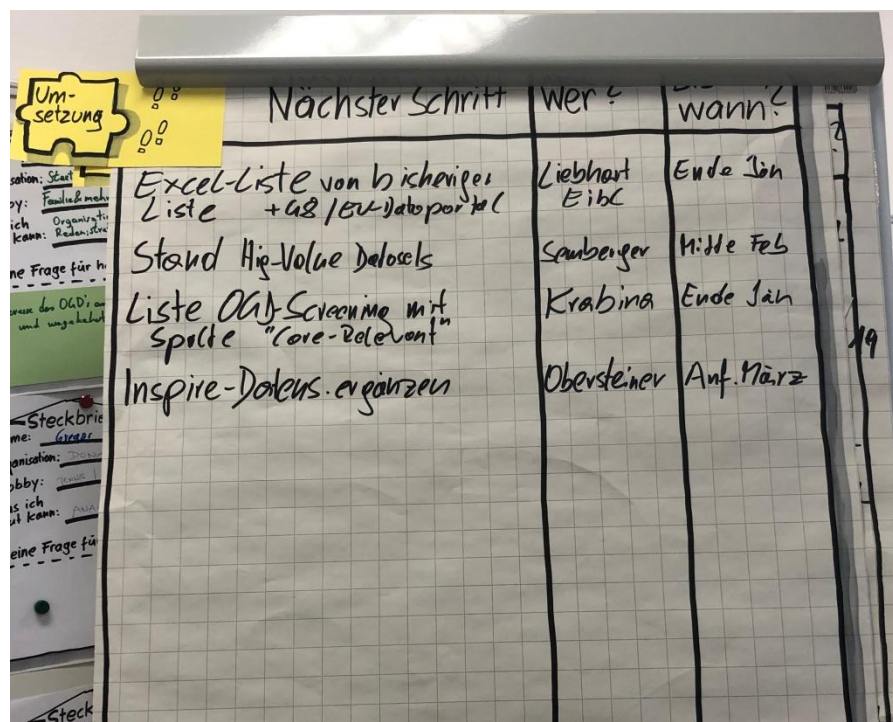 Um-
setzung
Nächster Schritt
Wer?
wann?
Excel-Liste von bisheriger
Liste +G8/EU-Datoportal
Liebhart
Eibl
Ende Jän
Stand Hig-Value Datasets
Semberger
Mitte Feb
Liste OGD-Screening mit
Spalte "Core-Relevant"
Krabina
Ende Jän
Inspire-Datens. ergänzen
Obersteiner
Anf. März
19
sation: Start
by: Familie & mehr
ich
kann:
ne Frage für h
und umgekehrt
Steckbrie
me:
anisation:
obby:
s ich
ut kann:
eine Frage fü
Steck